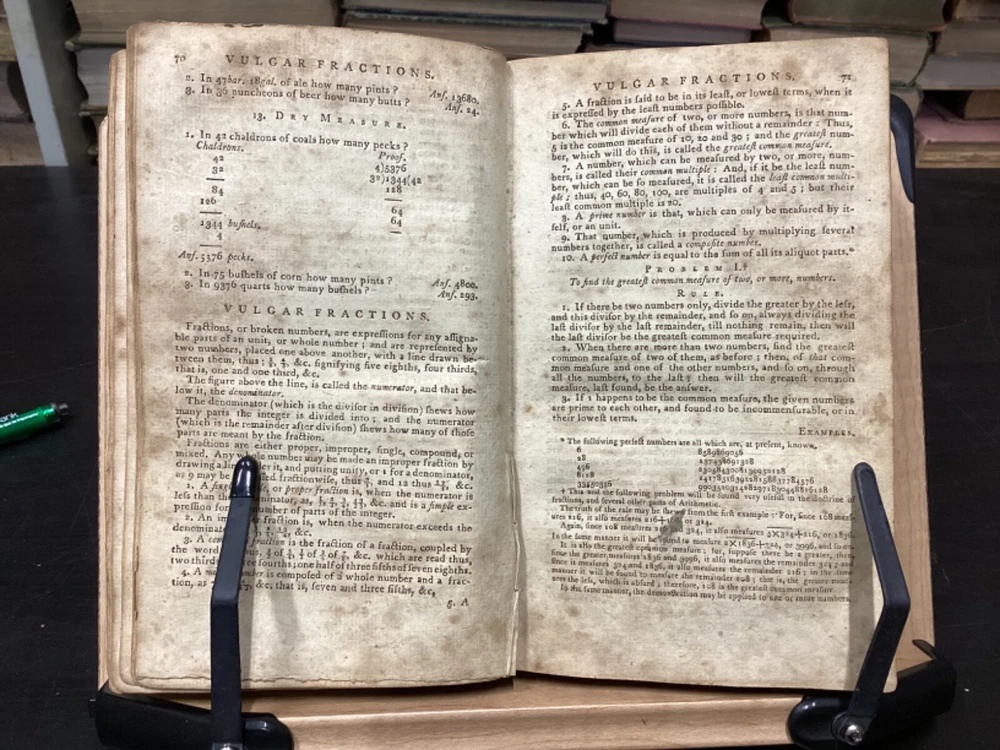 70
VULGAR FRACTIONS.
2. In 47bar. 18gal. of ale how many pints? Anſ. 13680.
3. In 36 puncheons of beer how many butts? Anſ. 24.
13. DRY MEASURE.
1. In 42 chaldrons of coals how many pecks?
Chaldrons. Proof.
42 4)5376
32 32)1344(42
84 128
126 64
1344 buſhels. 64
4
Anſ. 5376 pecks.
2. In 75 buſhels of corn how many pints? Anſ. 4800.
3. In 9376 quarts how many buſhels? Anſ. 293.
VULGAR FRACTIONS.
Fractions, or broken numbers, are expreſſions for any aſſigna-
ble parts of an unit, or whole number; and are repreſented by
two numbers, placed one above another, with a line drawn be-
tween them, thus; 5/8, 4/3, &c. ſignifying five eighths, four thirds,
that is, one and one third, &c.
The figure above the line, is called the numerator, and that be-
low it, the denominator.
The denominator (which is the diviſor in diviſion) ſhews how
many parts the integer is divided into; and the numerator
(which is the remainder after diviſion) ſhews how many of thoſe
parts are meant by the fraction.
Fractions are either proper, improper, ſingle, compound, or
mixed. Any whole number may be made an improper fraction by
drawing a line under it, and putting unity, or 1 for a denominator,
as 9 may be fractionwiſe, thus and 12 thus &c.
1. A or proper fraction is, when the numerator is
leſs than the &c. and is a ſimple ex-
preſſion for number of parts of the integer.
2. An fraction is, when the numerator exceeds the
&c.
3. A fraction is the fraction of a fraction, coupled by
the word &c. which are read thus,
two thirds fourths; one half of three fifths of ſeven eighths.
4. A is compoſed of a whole number and a frac-
tion, as &c. that is, ſeven and three fifths, &c.
5. A
VULGAR FRACTIONS. 71
5. A fraction is ſaid to be in its leaſt, or loweſt terms, when it
is expreſſed by the leaſt numbers poſſible.
6. The common meaſure of two, or more numbers, is that num-
ber which will divide each of them without a remainder: Thus,
5 is the common meaſure of 10, 20 and 30; and the greateſt num-
ber, which will do this, is called the greateſt common meaſure.
7. A number, which can be meaſured by two, or more, num-
bers, is called their common multiple: And, if it be the leaſt num-
ber, which can be ſo meaſured, it is called the leaſt common multi-
ple; thus, 40, 60, 80, 100, are multiples of 4 and 5; but their
leaſt common multiple is 20.
8. A prime number is that, which can only be meaſured by it-
ſelf, or an unit.
9. That number, which is produced by multiplying ſeveral
numbers together, is called a compoſite number.
10. A perfect number is equal to the ſum of all its aliquot parts.*
PROBLEM I.†
To find the greateſt common meaſure of two, or more, numbers.
RULE.
1. If there be two numbers only, divide the greater by the leſs,
and this diviſor by the remainder, and ſo on, always dividing the
laſt diviſor by the laſt remainder, till nothing remain, then will
the laſt diviſor be the greateſt common meaſure required.
2. When there are more than two numbers, find the greateſt
common meaſure of two of them, as before; then, of that com-
mon meaſure and one of the other numbers, and ſo on, through
all the numbers, to the laſt; then will the greateſt common
meaſure, laſt found, be the anſwer.
3. If 1 happens to be the common meaſure, the given numbers
are prime to each other, and found to be incommenſurable, or in
their loweſt terms.
EXAMPLES.
* The following perfect numbers are all which are, at preſent, known.
6 8589869056
28 137438691328
496 2305843008139952128
8128 2417851639228158837784576
33550336 9903520314282971830448816128
† This and the following problem will be found very uſeful in the doctrine of
fractions, and ſeveral other parts of Arithmetic.
The truth of the rule may be ſhewn from the first example: For, ſince 108 meaſ-
ures 216, it alſo meaſures 216+108, or 324.
Again, ſince 108 meaſures 324, it alſo meaſures 5×324+216, or 1836.
In the ſame manner it will be found to meaſure 2×1836+324, or 3996, and ſo on.
It is alſo the greateſt common meaſure; for, ſuppoſe there be a greater, then
ſince the greater meaſures 1836 and 3996, it alſo meaſures the remainder 324; and
ſince it meaſures 324 and 1836, it alſo meaſures the remainder 216; in the ſame
manner it will be found to meaſure the remainder 108; that is, the greater meaſ-
ures the leſs, which is abſurd; therefore, 108 is the greateſt common meaſure.
In the ſame manner, the demonſtration may be applied to one or more numbers.